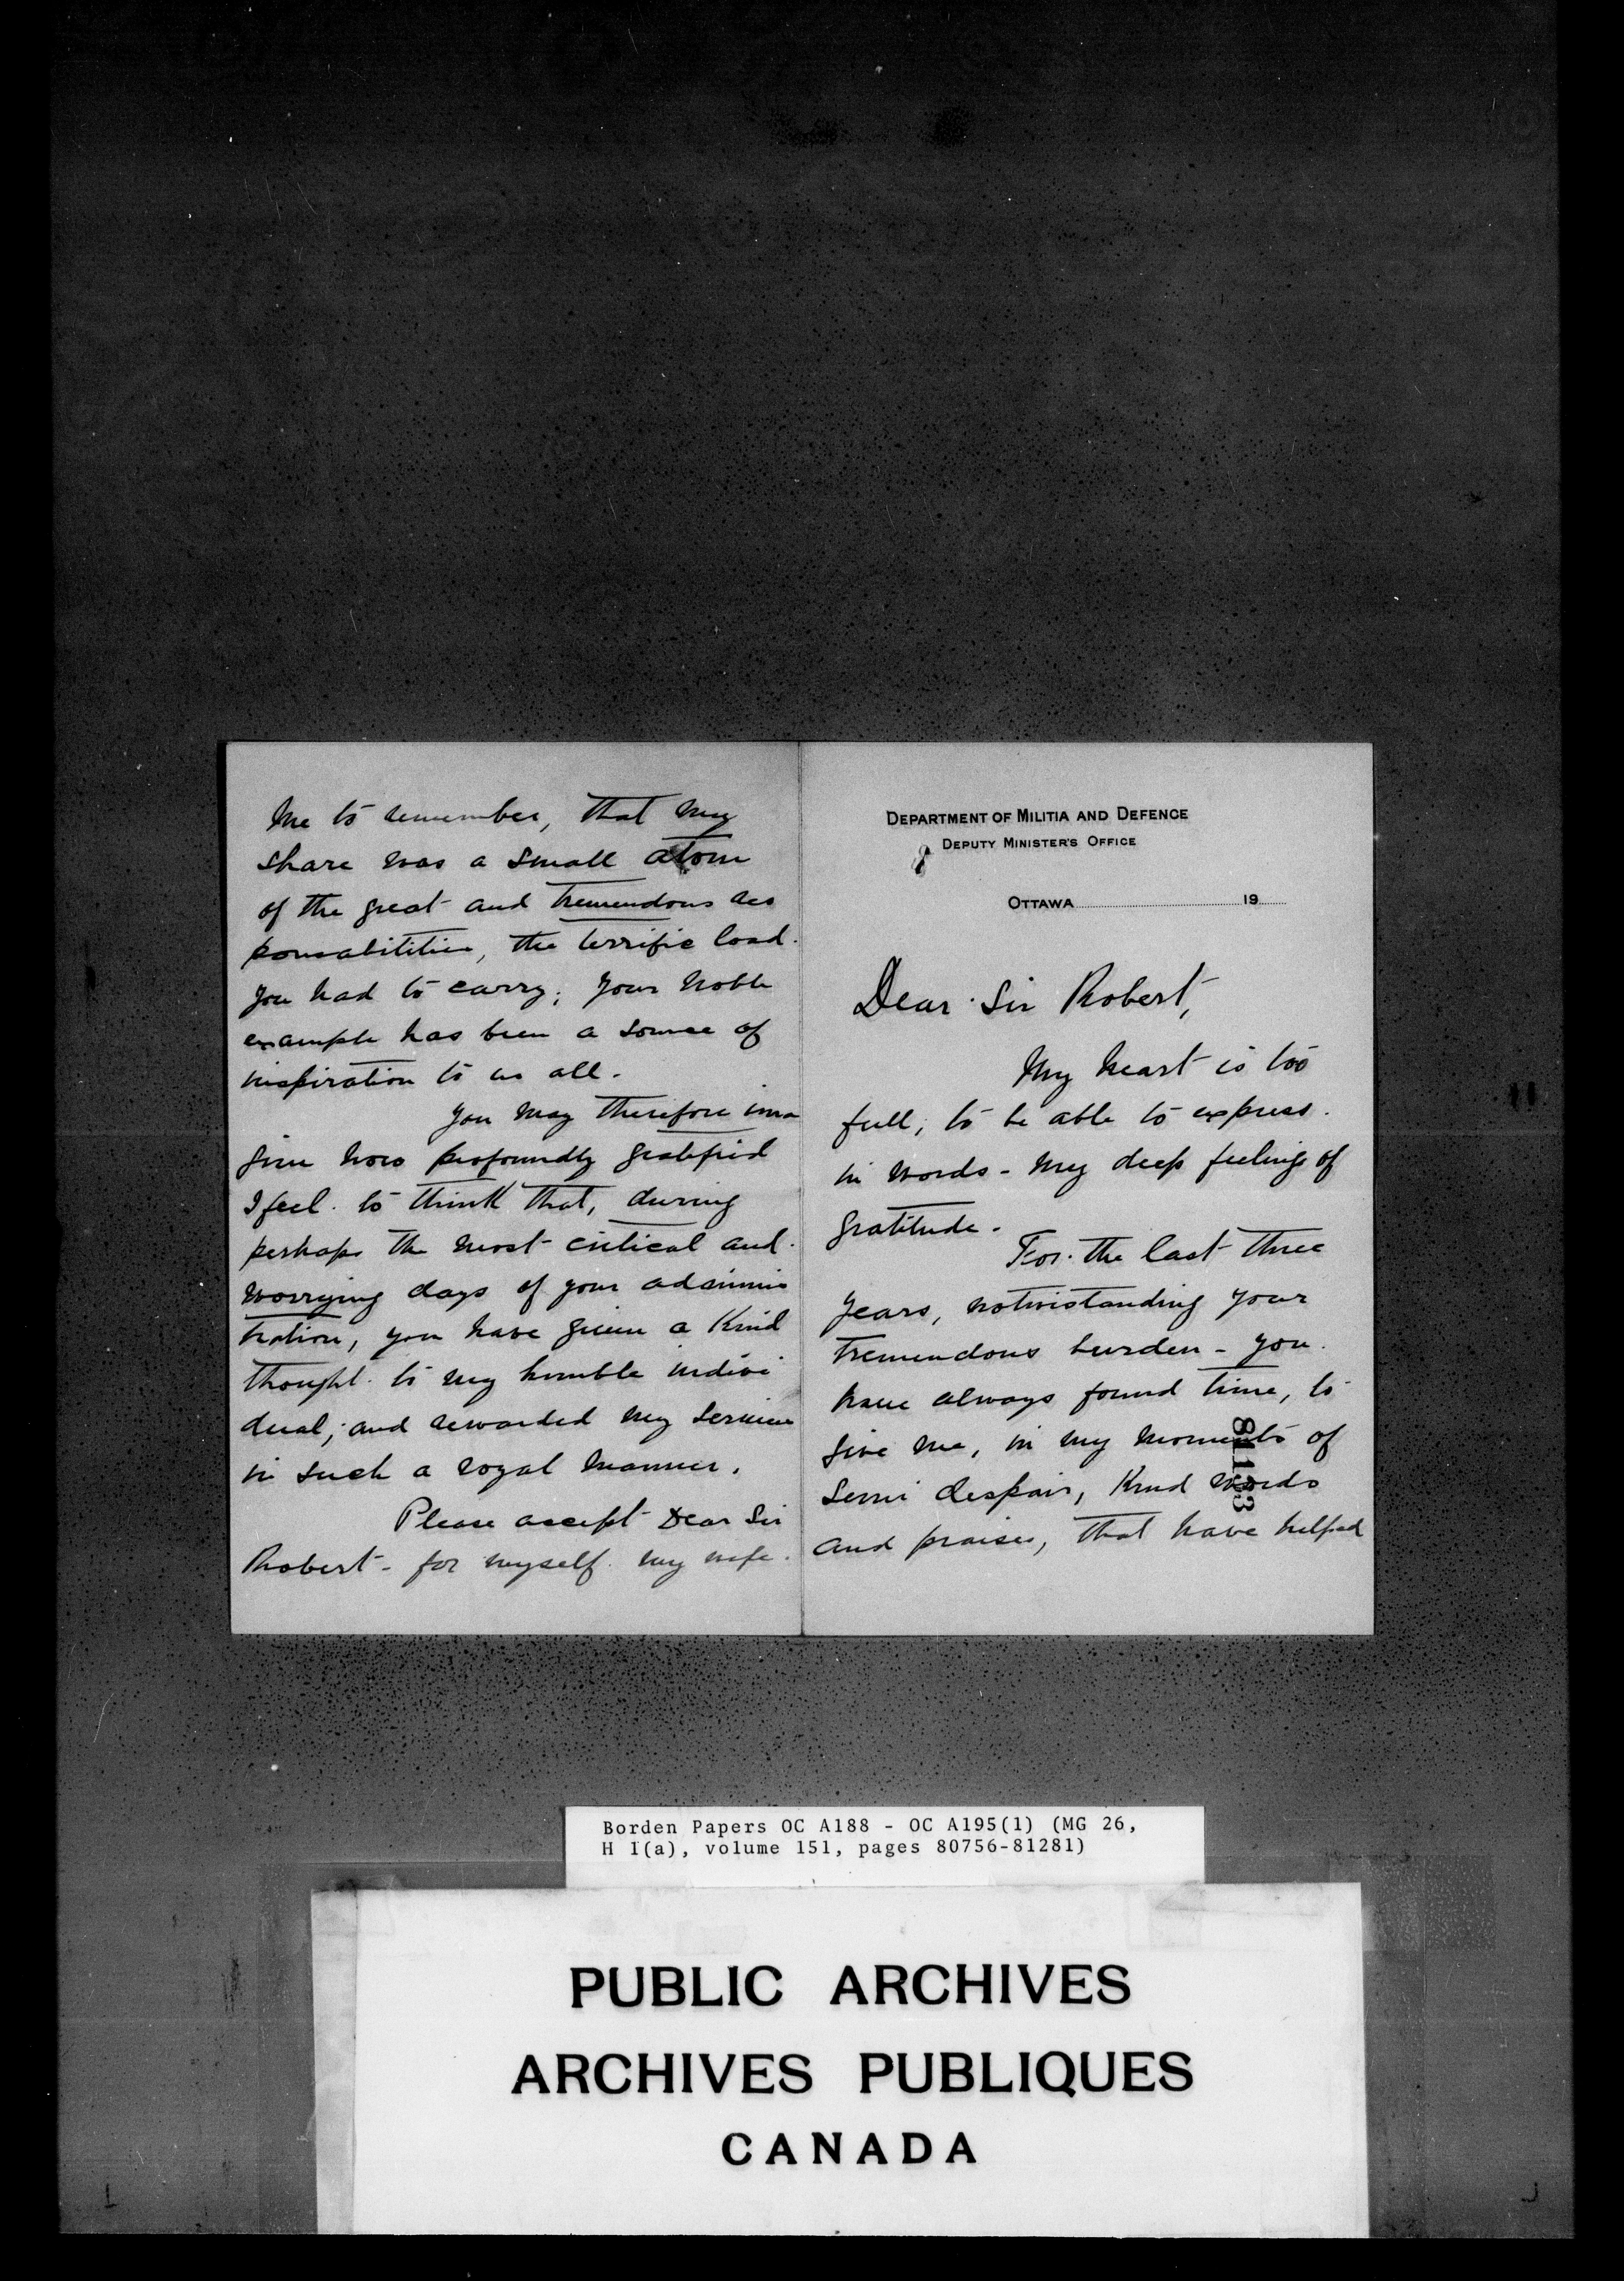 DEPARTMENT OF MILITIA AND DEFENCE
DEPUTY MINISTER'S OFFICE
OTTAWA 19
Dear Sir Robert,
My heart is too
full, to be able to express.
in words - my deep feelings of
gratitude.
For the last three
years, notwistanding your
tremendous burden - you
have always found time, to
give me, in my moments of
semi despair, Kind words
and praises, that have helped
81133
me to remember, that my
share was a small atom
of the great and tremendous res
ponsabilities, the terrific load
you had to carry; your noble
example has been a source of
inspiration to us all.
You may therefore ima
gine how profoundly gratified
I feel to think that, during
perhaps the most critical and
worrying days of your adminis
tration, you have given a Kind
thought to my humble indivi
dual; and rewarded my services
in such a royal manner.
Please accept Dear Sir
Robert - for myself my wife.
Borden Papers OC A188 - OC A195(1) (MG 26,
H 1(a), volume 151, pages 80756-81281)
PUBLIC ARCHIVES
ARCHIVES PUBLIQUES
CANADA